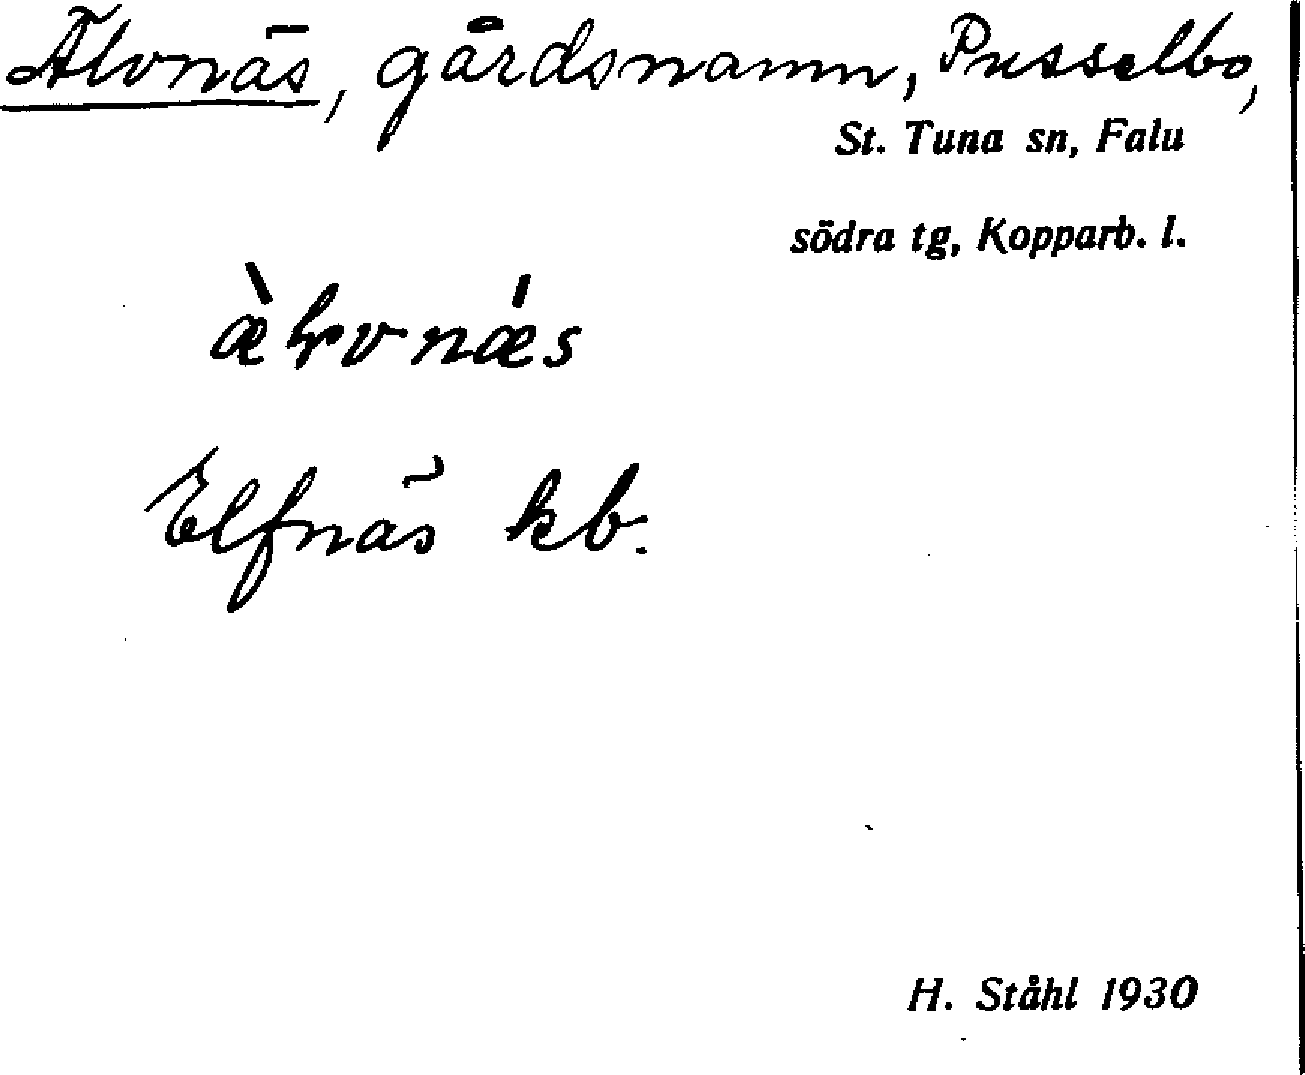 Älvnäs, gårdsnamn, Pusselbo,
St. Tuna sn, Falu
södra tg, Kopparb. l.
Elfnäs kb.
H. Ståhl 1930